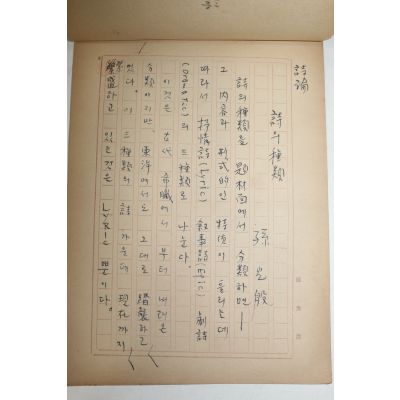 詩論
詩의 種類
詩의 種類를 題材面에서 分類하면 —
그 內容과 形式的인 特項이 틀리는데
따라서 抒情詩(Lyric) 敍事詩(Epic) 劇詩
(Dramatic)의 三種類로 나눈다.
이것은 古代 希臘에서 부터 내려온
分類이지만, 東洋에서도 그대로 踏襲하고
있다. 이 三種類의 詩 가운데 現在까지
繁盛하고 있는것은 Lyric 뿐이다.